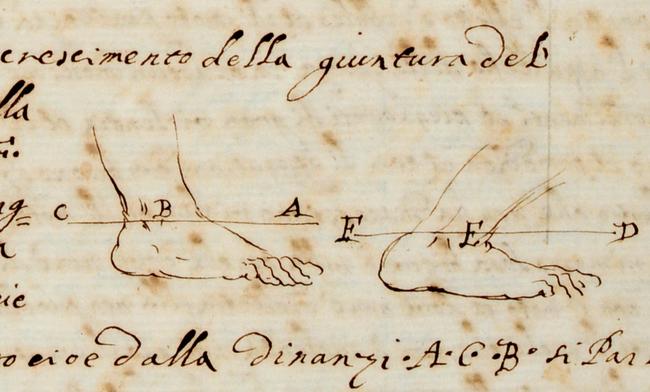 crescimento della giuntura del
lla
C B A F E D
o cioe dalla dinanzi · A · C · B · si Par